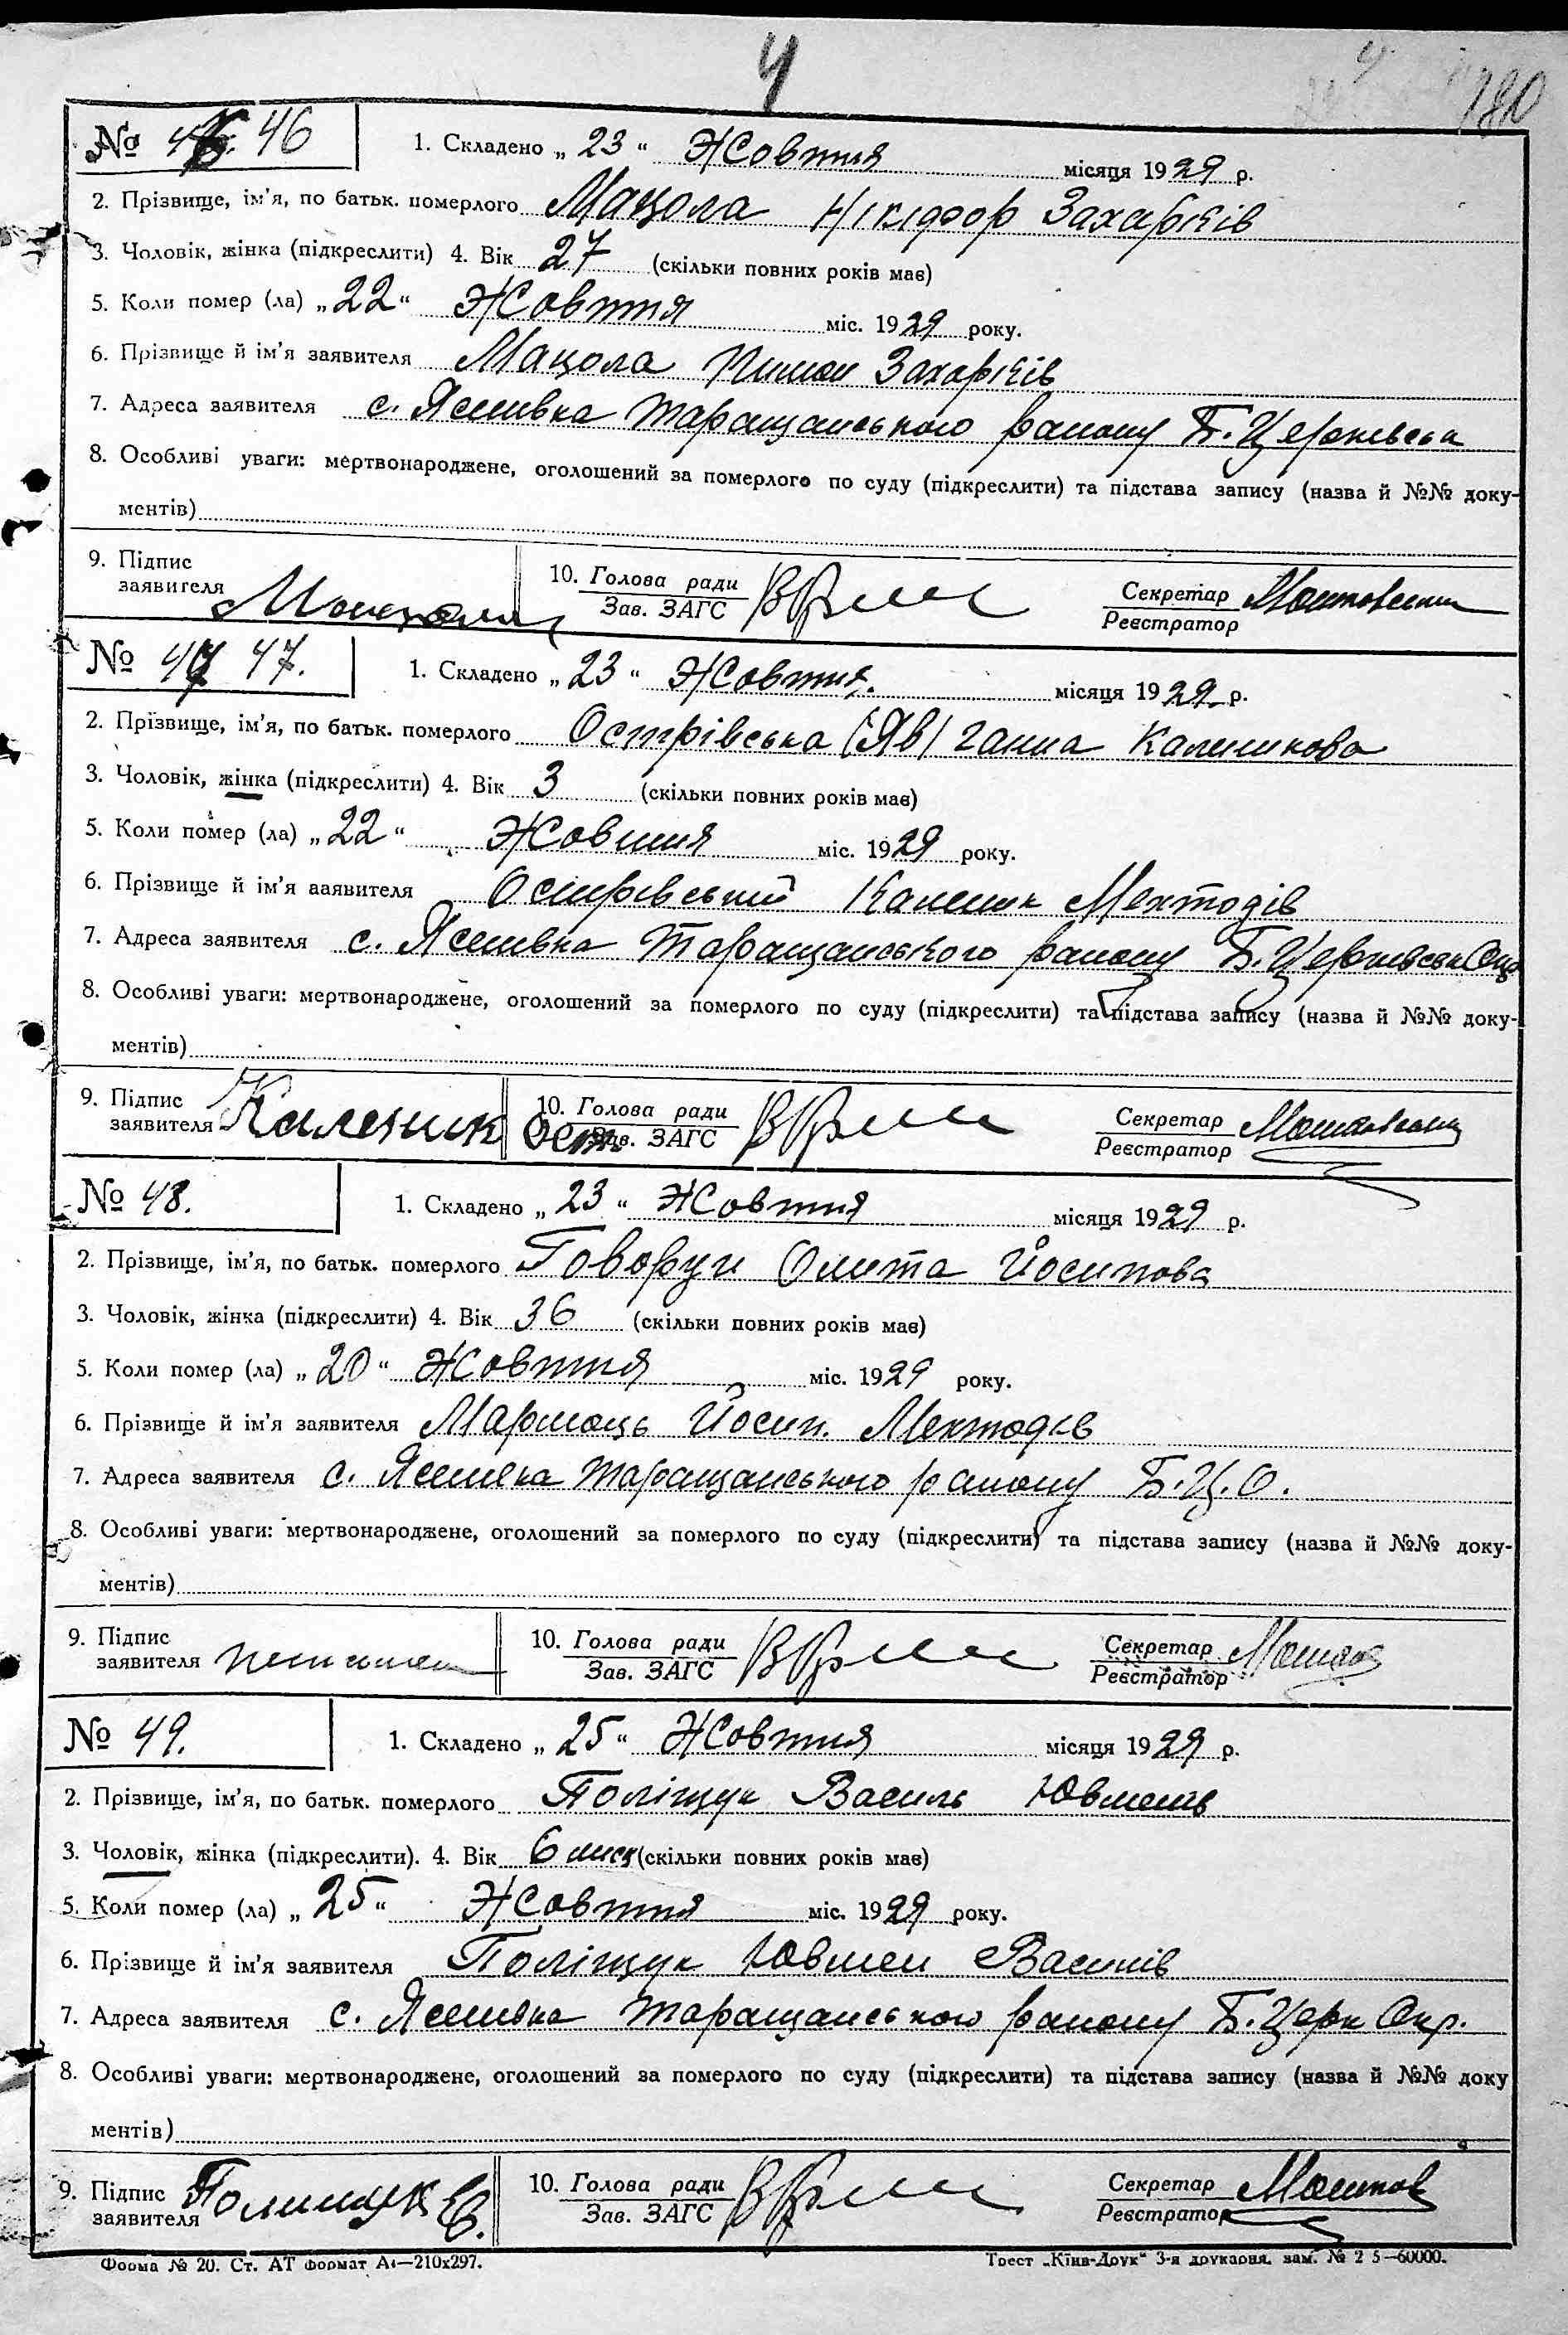 4
180
№ 46 1. Складено „ 23 “ Жовтня місяця 1929 р.
2. Прізвище, ім’я, по батьк. померлого Мацола Нікіфор Захарків
3. Чоловік, жінка (підкреслити) 4. Вік 27 (скільки повних років має)
5. Коли помер (ла) „ 22 “ Жовтня міс. 1929 року.
6. Прізвище й ім’я заявителя Мацола Захарків
7. Адреса заявителя с. Ясенівка Таращанського району Б. Церківськ
8. Особливі уваги: мертвонароджене, оголошений за померлого по суду (підкреслити) та підстава запису (назва й №№ доку-
ментів)
9. Підпис заявителя Мацола 10. Голова ради Зав. ЗАГС Секретар Реєстратор
№ 47. 1. Складено „ 23 “ Жовтня. місяця 1929 р.
2. Прізвище, ім’я, по батьк. померлого Острівська (Яв) Ганна Каленикова
3. Чоловік, жінка (підкреслити) 4. Вік 3 (скільки повних років має)
5. Коли помер (ла) „ 22 “ Жовтня міс. 1929 року.
6. Прізвище й ім’я заявителя Острівський Каленик Мехтодів
7. Адреса заявителя с. Ясенівка Таращанського району Б. Церківськ Окр
8. Особливі уваги: мертвонароджене, оголошений за померлого по суду (підкреслити) та підстава запису (назва й №№ доку-
ментів)
9. Підпис заявителя Каленик Ост 10. Голова ради Зав. ЗАГС Секретар Реєстратор
№ 48. 1. Складено „ 23 “ Жовтня місяця 1929 р.
2. Прізвище, ім’я, по батьк. померлого Говорун Йосипова
3. Чоловік, жінка (підкреслити) 4. Вік 36 (скільки повних років має)
5. Коли помер (ла) „ 20 “ Жовтня міс. 1929 року.
6. Прізвище й ім’я заявителя Йосип. Мехтодів
7. Адреса заявителя с. Ясенівка Таращанського району Б. Ц. О.
8. Особливі уваги: мертвонароджене, оголошений за померлого по суду (підкреслити) та підстава запису (назва й №№ доку-
ментів)
9. Підпис заявителя 10. Голова ради Зав. ЗАГС Секретар Реєстратор
№ 49. 1. Складено „ 25 “ Жовтня місяця 1929 р.
2. Прізвище, ім’я, по батьк. померлого Поліщук Василь Ювменів
3. Чоловік, жінка (підкреслити). 4. Вік 6 міся (скільки повних років має)
5. Коли помер (ла) „ 25 “ Жовтня міс. 1929 року.
6. Прізвище й ім’я заявителя Поліщук Ювмен Василів
7. Адреса заявителя с. Ясенівка Таращанського району Б. Церк Окр.
8. Особливі уваги: мертвонароджене, оголошений за померлого по суду (підкреслити) та підстава запису (назва й №№ доку
ментів)
9. Підпис заявителя Полищук Ю. 10. Голова ради Зав. ЗАГС Секретар Реєстратор
Форма № 20. Ст. АТ Формат А4—210х297. Трест „Київ-Друк“ 3-я друкарня. зам. № 2 5—60000.